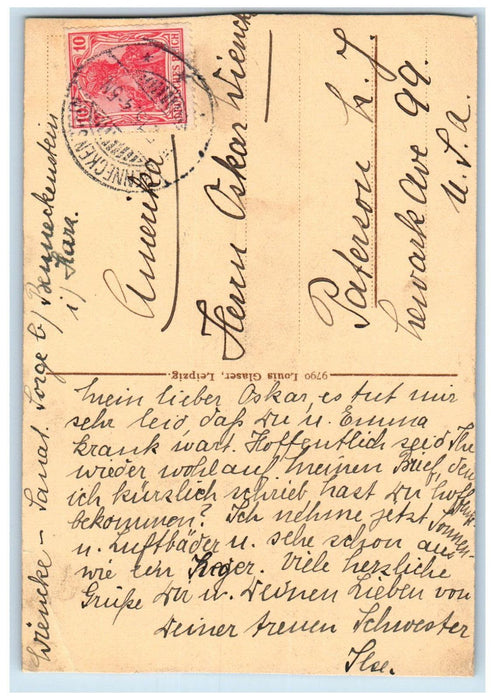 10
10
Amerika
Herrn Oskar Wienck
Paterson N. J.
Newark Ave 99.
U.S.a.
9790 Louis Glaser, Leipzig.
Mein lieber Oskar, es tut mir
sehr leid daß Du u. Emma
krank wart. Hoffentlich seid Ihr
wieder wohlauf. Meinen Brief, den
ich kürzlich schrieb hast Du hoffentl.
bekommen? Ich nehme jetzt Sonnen-
u. Luftbäder u. sehe schon aus
wie ein Neger. Viele herzliche
Grüße Dir u. Deinen Lieben von
Deiner treuen Schwester
Ilse.
Wiencke – Sanat. Sorge b/ Benneckenstein
i/ Harz.